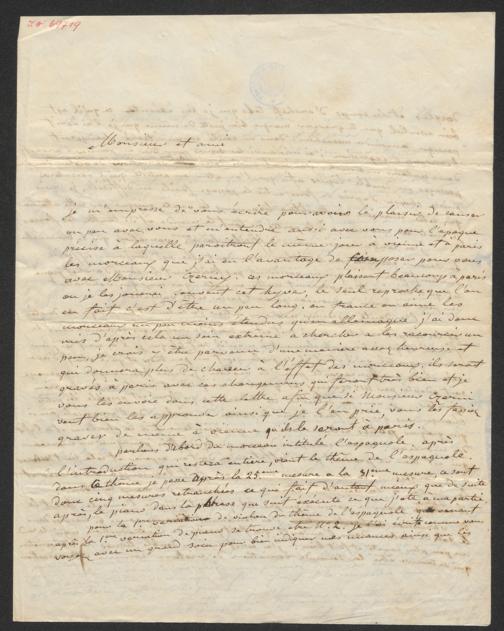 Monsieur et ami
je m'empresse de vous écrire pour avoir le plaisir de causer
un peu avec vous et m'entendre aussi avec vous pour l'époque
précise à laquelle paraitront le même jour à vienne et à paris
les morceaux que j'ai eu l'avantage de composer pour vous
avec Monsieur Czerny: ces morceaux plaisent beaucoup à paris
ou je les joue souvent cet hyver, le seul reproche que l'on
en fait c'est d'être un peu long; en france on aime les
morceaux un peu moins étendus qu'en allemagne j'ai donc
mis d'après cela un soin extrême à chercher à les raccourcir un
peu, je crois y être parvenu d'une manière assez heureuse et
qui donnera plus de chaleur à l'effet des morceaux, ils seront
gravés à paris avec ces changemens qui feront très bien et je
vous les envoie dans cette lettre afin que si Monsieur Czerni
veut bien les approuver ainsi que je l'en prie, vous les fassiez
graver de même à vienne qu'ils le seront à paris.
parlons d'abord du morceau intitulé l'espagnole. après
l'introduction que restera entière, vient le thème de l'espagnole
dans le thème je passe après la 25 mesure à la 31ème mesure, ce sont
donc cinq mesures retranchées ce qui fait d'autant mieux que de suite
après le piano dans la phrase qui suit exécute ce que j'ote à ma partie
pour la variation de violon du thème de l'espagnole qui vient
après la 1ère variation de piano se trouve être N. 2. je l'ai écrite comme vous
voyez avec un grand soin pour bien indiquer mes nuances ainsi que les